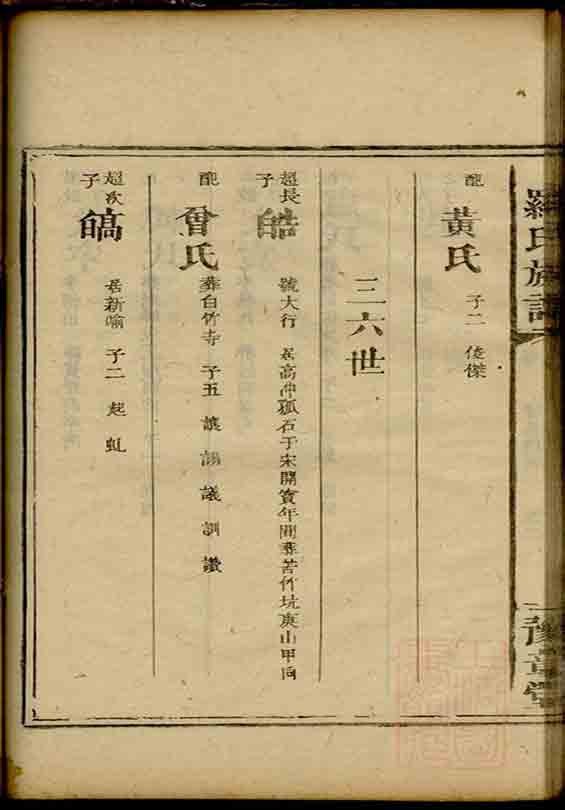 羅氏族譜
豫章堂
配 黃氏 子二 俊傑
三六世
超長子 皓 號大行 居高沖孤石于宋開寶年間葬苦竹坑庚山甲向
配 曾氏 葬白竹寺 子五 謨 謁 議 訓 讚
超次子 皜 居新喻 子二 起 虬